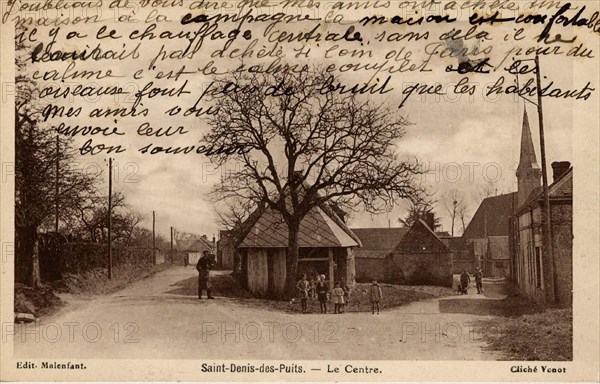 J'oubliais de vous dire que mes amis ont acheté un
maison a la campagne la maison est confortable
il y a ce chauffage centrale, sans dela il ne
l'aurait pas acheté si loin de Paris pour du
calme c'est le calme complet les
oiseause font plus de bruit que les habitants
Mes amis vous
envoie leur
bon souvenir
PHOTO 12
PHOTO 12
PHOTO 12
Edit. Malenfant.
Saint-Denis-des-Puits. — Le Centre.
Cliché Venot